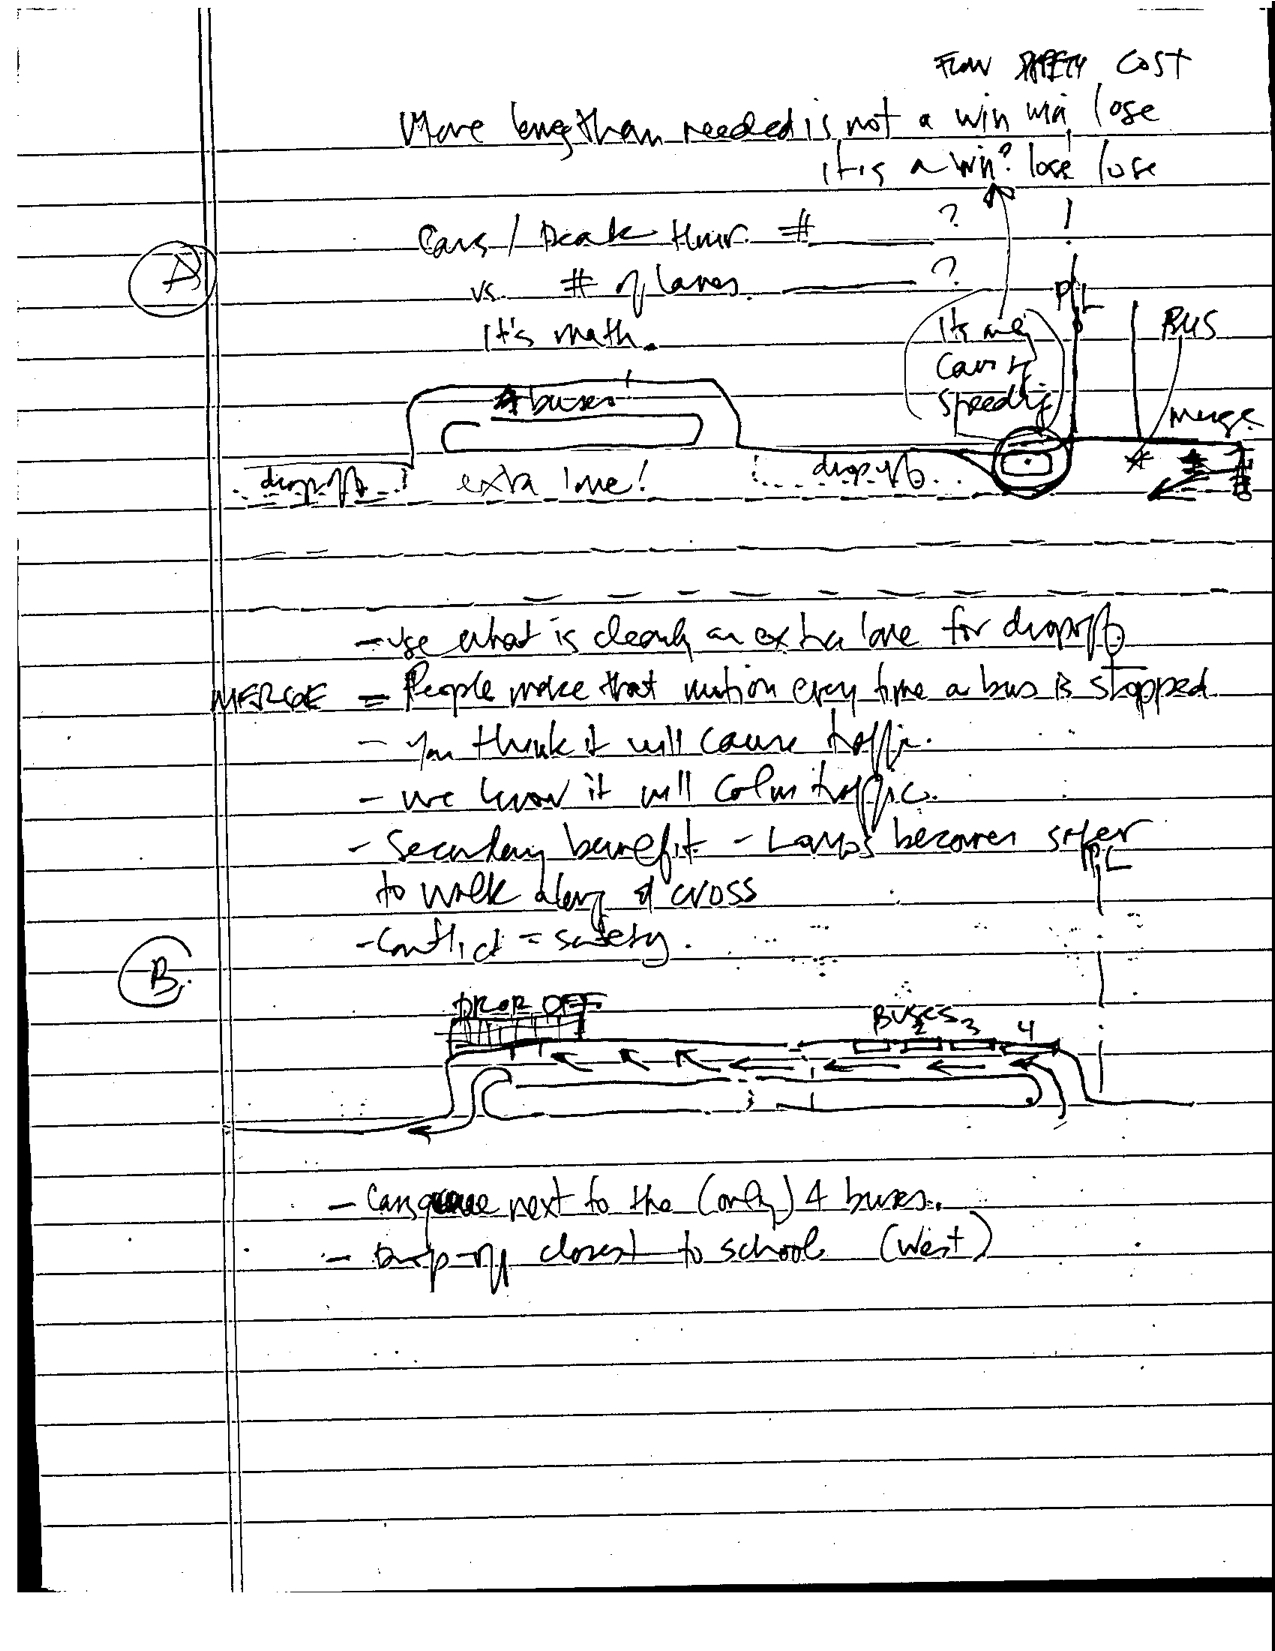 FLOW SAFETY COST
More lanes than needed is not a win win lose
it is a win? lose lose
Cars / Peak Hour # ?
!
A
vs. # of lanes. ?
It's math.
P/L
BUS
Its only
Cars
speeding
4 buses
Merge
drop off
extra lane!
drop off
- use what is clearly an extra lane for dropoff
MERGE = People make that motion every time a bus is stopped
- You think it will cause traffic.
- we know it will calm traffic.
- Secondary benefit - becomes safer
to walk along & cross
P/L
- Conflict = safety.
B
DROP OFF
BUSES
2 3 4
- Cars queue next to the (only) 4 buses.
- Drop-off closest to school (West)